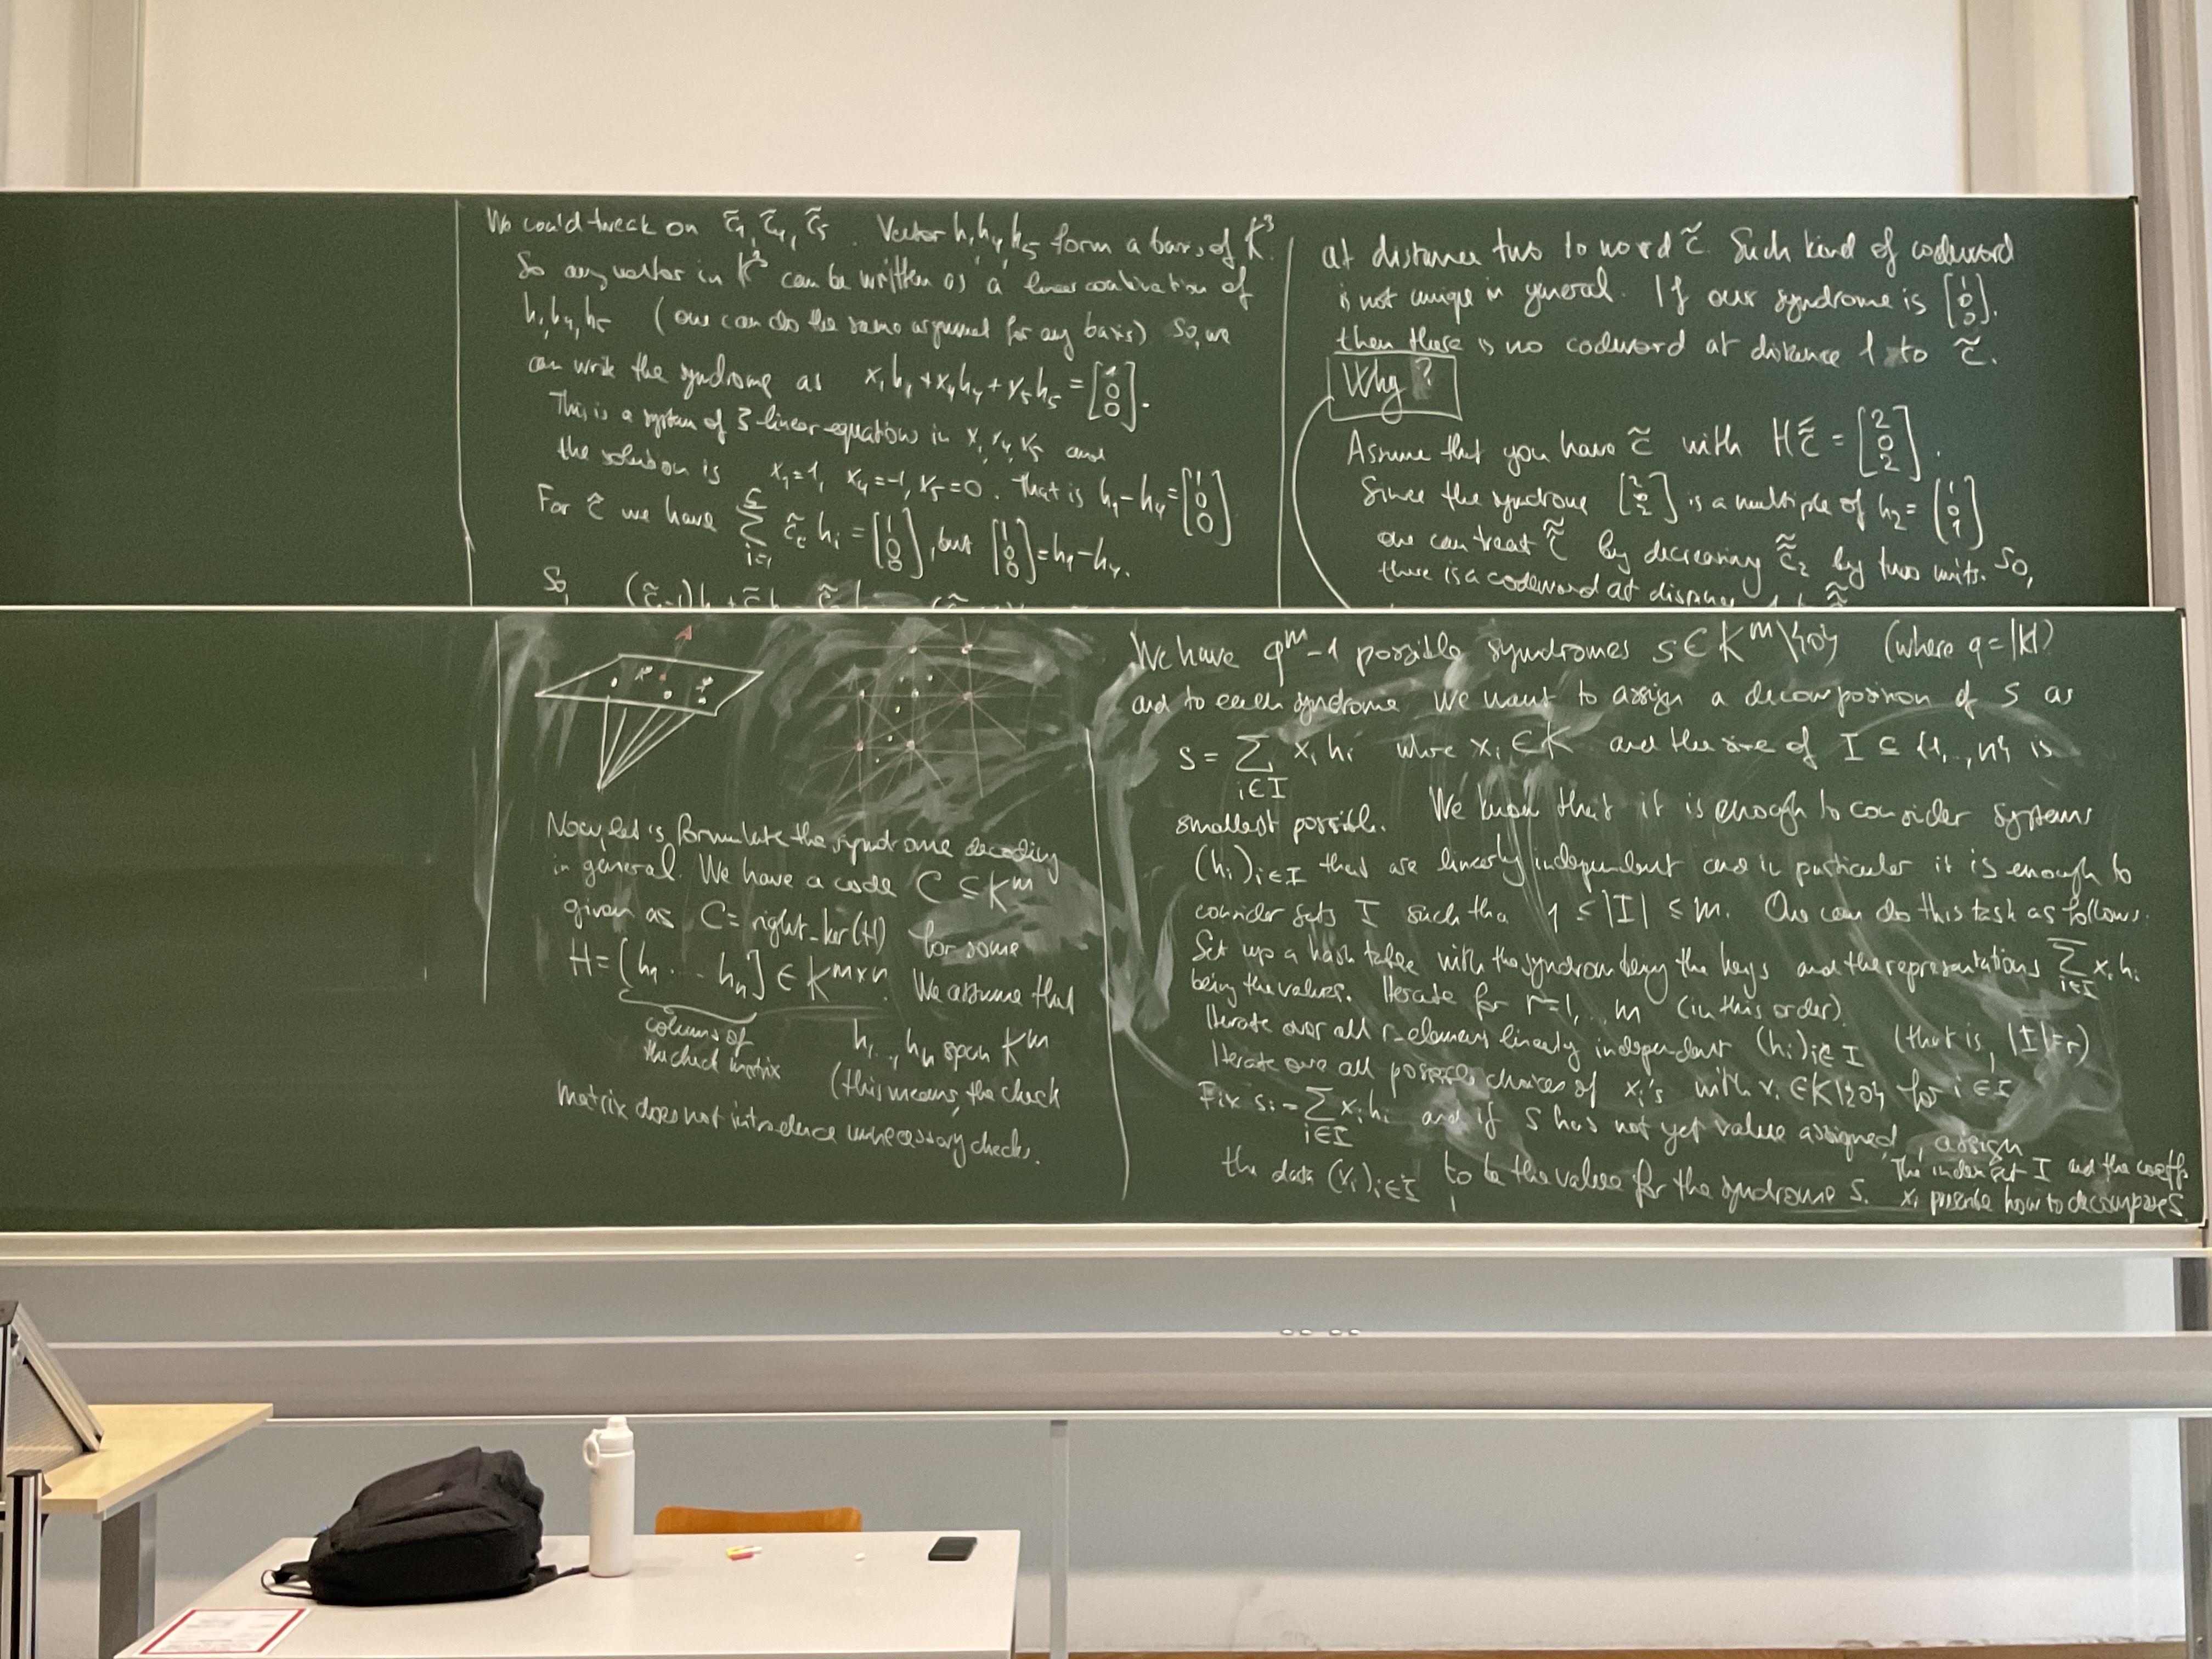 We could tweak on c̃₁, c̃₄, c̃₅. Vector h₁, h₄, h₅ form a basis of K³.
So any vector in K³ can be written as a linear combination of
h₁, h₄, h₅ (one can do the same argument for any basis) So, we
can write the syndrome as x₁h₁ + x₄h₄ + x₅h₅ = [1 0 0].
This is a system of 3 linear equation in x₁, x₄, x₅ and
the solution is x₁=1, x₄=-1, x₅=0. That is h₁-h₄=[1 0 0]
For c̃ we have ∑_{i=1}^5 c̃ᵢ hᵢ = [1 0 0], but [1 0 0] = h₁-h₄.
So,
at distance two to word c̃. Such kind of codeword
is not unique in general. If our syndrome is [1 0 0],
then there is no codeword at distance 1 to c̃.
Why?
Assume that you have c̃̃ with Hc̃̃ = [2 0 2].
Since the syndrome [2 0 2] is a multiple of h₂ = (1 0 1)
one can treat c̃̃ by decreasing c̃̃₂ by two units. So,
there is a codeword at distance
Now, let's formulate the syndrome decoding
in general. We have a code C ⊆ K^m
given as C = right-ker(H) for some
H = [h₁ ... hₙ] ∈ K^{m×n}. We assume that
columns of
the check matrix
h₁, .., hₙ span K^m
(this means, the check
matrix does not introduce unnecessary checks.
We have q^m - 1 possible syndromes s ∈ K^m \ {0} (where q = |K|)
and to each syndrome we want to assign a decomposition of s as
s = ∑_{i∈I} xᵢ hᵢ where xᵢ ∈ K and the size of I ⊆ {1, .., n} is
smallest possible. We know that it is enough to consider systems
(hᵢ)_{i∈I} that are linearly independent and in particular it is enough to
consider sets I such tha 1 ≤ |I| ≤ m. One can do this task as follows:
Set up a hash table with the syndrom being the keys and the representations ∑_{i∈I} xᵢ hᵢ
being the values. Iterate for r=1, .. m (in this order)
Iterate over all r-element linearly independent (hᵢ)_{i∈I} (that is, |I|=r)
Iterate over all possible choices of xᵢ's with xᵢ ∈ K\{0} for i ∈ I
Fix s := ∑_{i∈I} xᵢ hᵢ and if s has not yet value assigned, assign
the data (xᵢ)_{i∈I} to be the value for the syndrome s. The index set I and the coeff.
xᵢ how to decompose s.